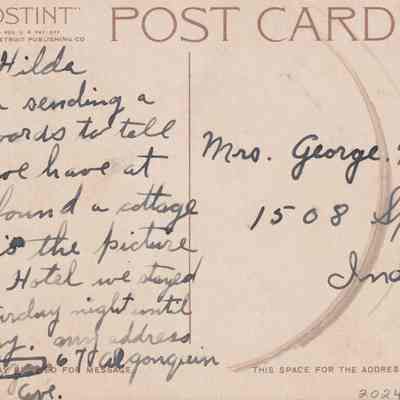 OSTINT"
REG. U.S. PAT. OFF.
DETROIT PUBLISHING CO
POST CARD
Hilda
sending a
words to tell
we have at
found a cottage
is the picture
Hotel we stayed
urday night until
y. any address
67 Algonquin
Ave.
Mrs. George.
1508 Sp
Ind
FOR MESSAGE.
THIS SPACE FOR THE ADDRES
2024